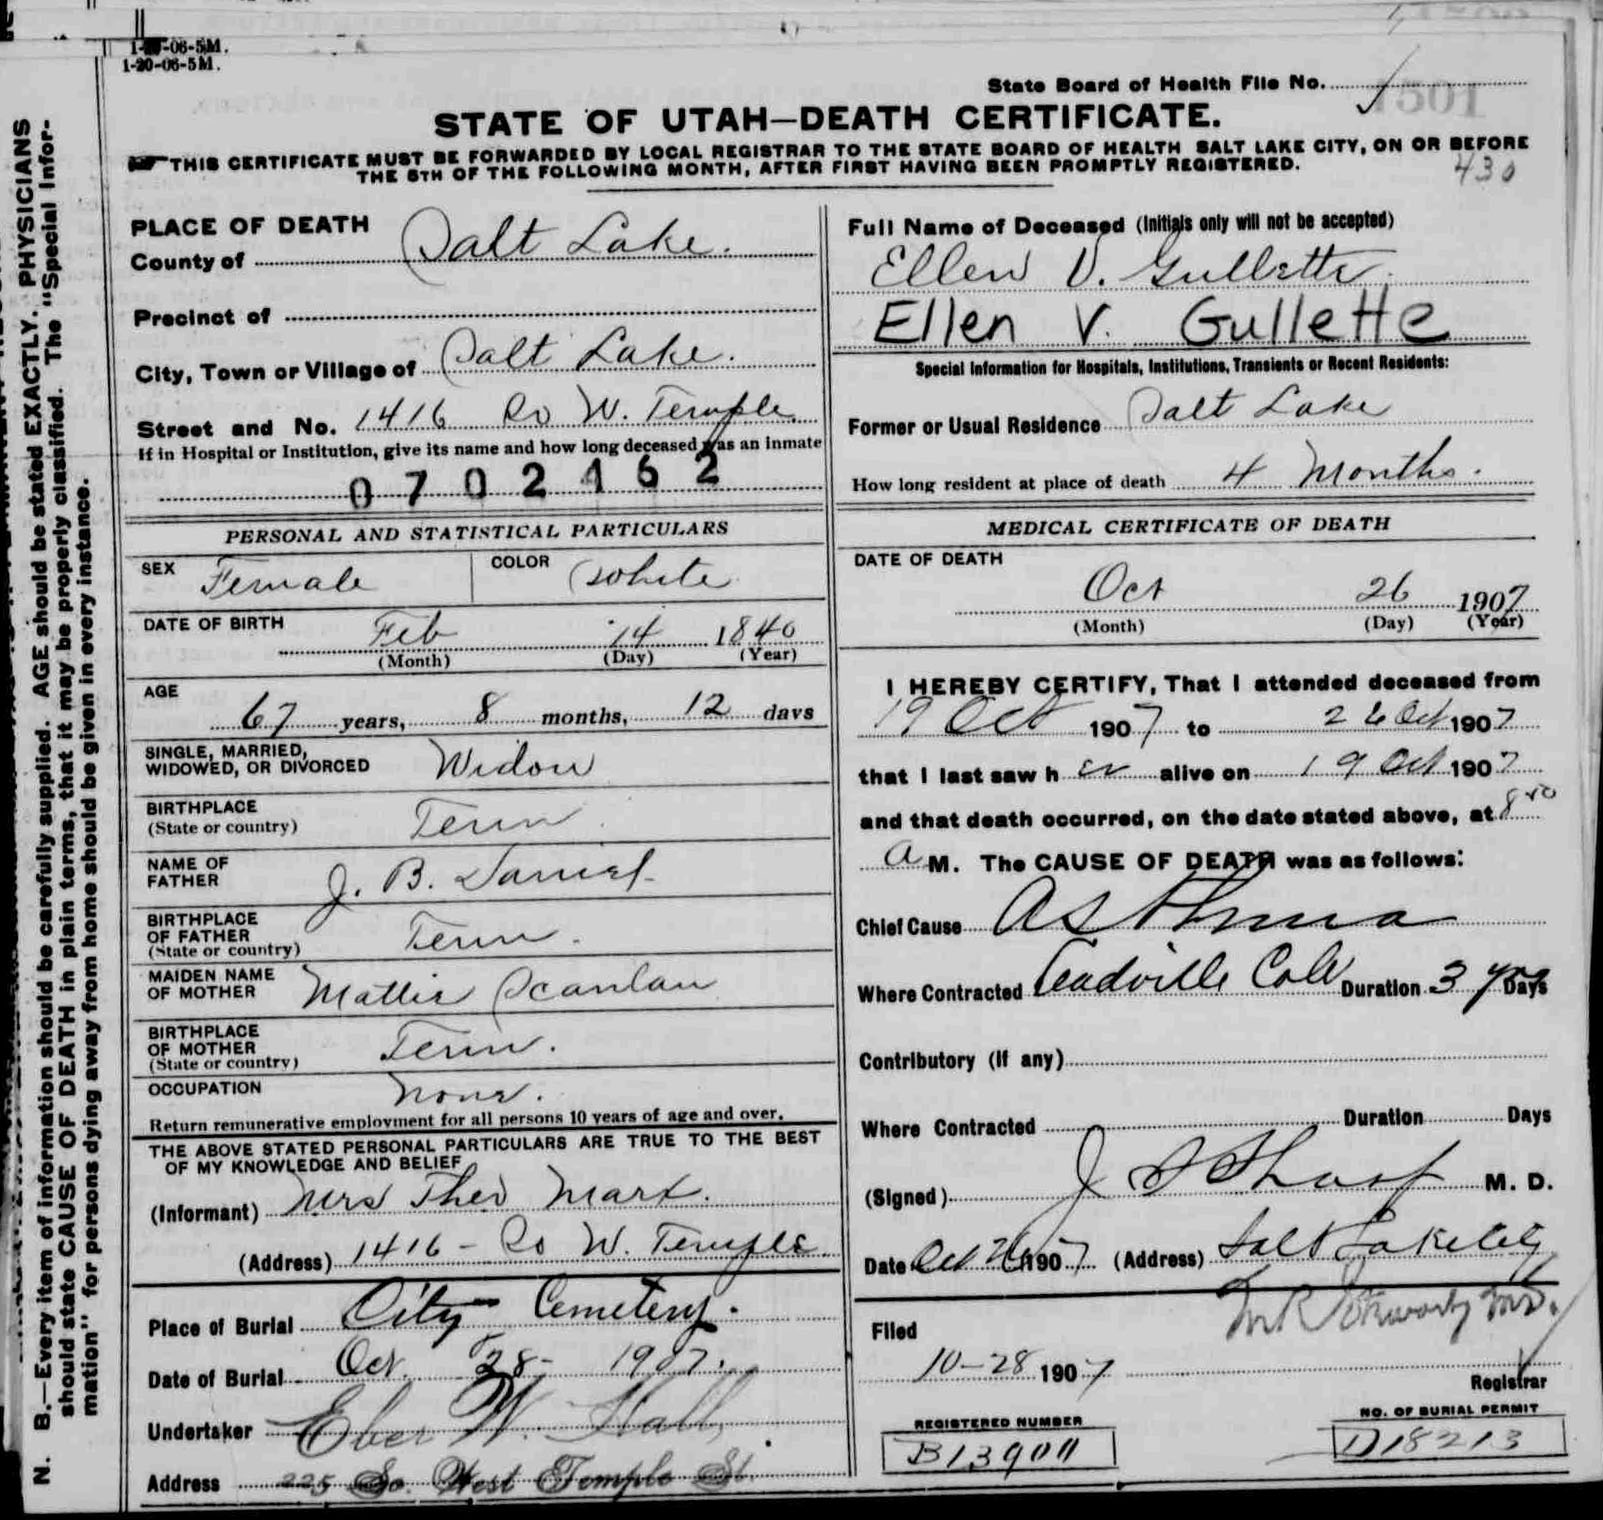 1-20-06-5M.
1-20-06-5M.
State Board of Health File No.
STATE OF UTAH—DEATH CERTIFICATE.
THIS CERTIFICATE MUST BE FORWARDED BY LOCAL REGISTRAR TO THE STATE BOARD OF HEALTH SALT LAKE CITY, ON OR BEFORE
THE 5TH OF THE FOLLOWING MONTH, AFTER FIRST HAVING BEEN PROMPTLY REGISTERED.
430
N. B.—Every item of information should be carefully supplied. AGE should be stated EXACTLY. PHYSICIANS
should state CAUSE OF DEATH in plain terms, that it may be properly classified. The "Special Infor-
mation" for persons dying away from home should be given in every instance.
PLACE OF DEATH
County of Salt Lake.
Precinct of
City, Town or Village of Salt Lake.
Street and No. 1416 So W. Temple
If in Hospital or Institution, give its name and how long deceased was an inmate
0702162
PERSONAL AND STATISTICAL PARTICULARS
SEX Female COLOR White
DATE OF BIRTH Feb 14 1840
(Month) (Day) (Year)
AGE
67 years, 8 months, 12 days
SINGLE, MARRIED,
WIDOWED, OR DIVORCED Widow
BIRTHPLACE
(State or country) Tenn.
NAME OF
FATHER J. B. Daniel
BIRTHPLACE
OF FATHER
(State or country) Tenn.
MAIDEN NAME
OF MOTHER Mattie Scanlan
BIRTHPLACE
OF MOTHER
(State or country) Tenn.
OCCUPATION None.
Return remunerative employment for all persons 10 years of age and over.
THE ABOVE STATED PERSONAL PARTICULARS ARE TRUE TO THE BEST
OF MY KNOWLEDGE AND BELIEF
(Informant) Mrs Theo Marx.
(Address) 1416 - So W. Temple.
Place of Burial City Cemetery.
Date of Burial Oct. 28 - 1907.
Undertaker Eber W. Hall,
Address 225 So. West Temple St.
Full Name of Deceased (Initials only will not be accepted)
Ellen V. Gullette.
Ellen V. Gullette
Special Information for Hospitals, Institutions, Transients or Recent Residents:
Former or Usual Residence Salt Lake
How long resident at place of death 4 Months.
MEDICAL CERTIFICATE OF DEATH
DATE OF DEATH
Oct 26 1907
(Month) (Day) (Year)
I HEREBY CERTIFY, That I attended deceased from
19 Oct 1907 to 26 Oct 1907
that I last saw h er alive on 19 Oct 1907
and that death occurred, on the date stated above, at 8
a M. The CAUSE OF DEATH was as follows:
Chief Cause Asthma
Where Contracted Leadville Colo Duration 3 yrs Days
Contributory (if any)
Where Contracted Duration Days
(Signed) M. D.
Date Oct 26 1907 (Address) Salt Lake City
Filed
10-28 1907
Registrar
REGISTERED NUMBER
NO. OF BURIAL PERMIT
D18213